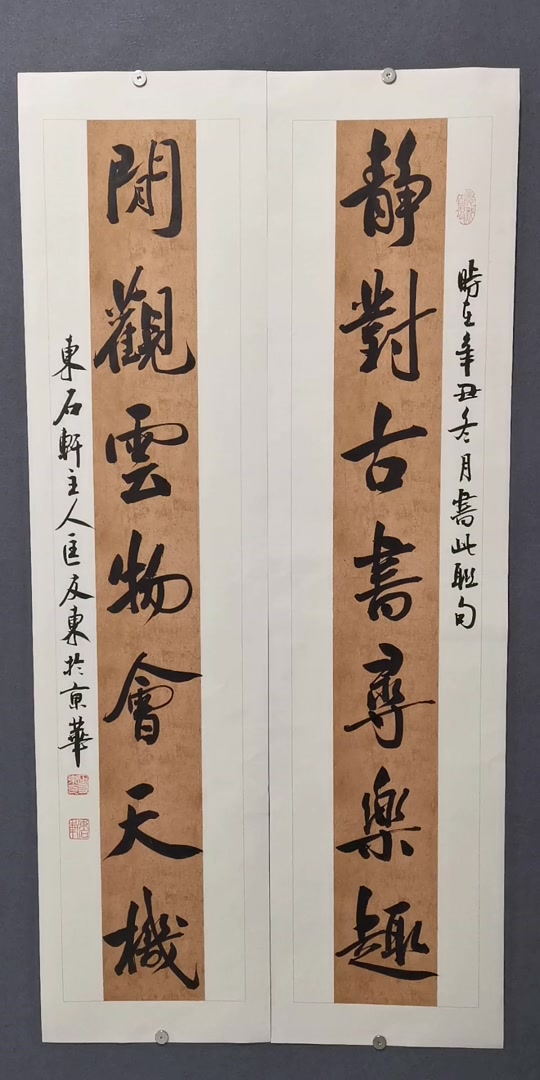 時在辛丑冬月書此聯句
靜對古書尋樂趣
閒觀雲物會天機
東石軒主人匡友東於京華